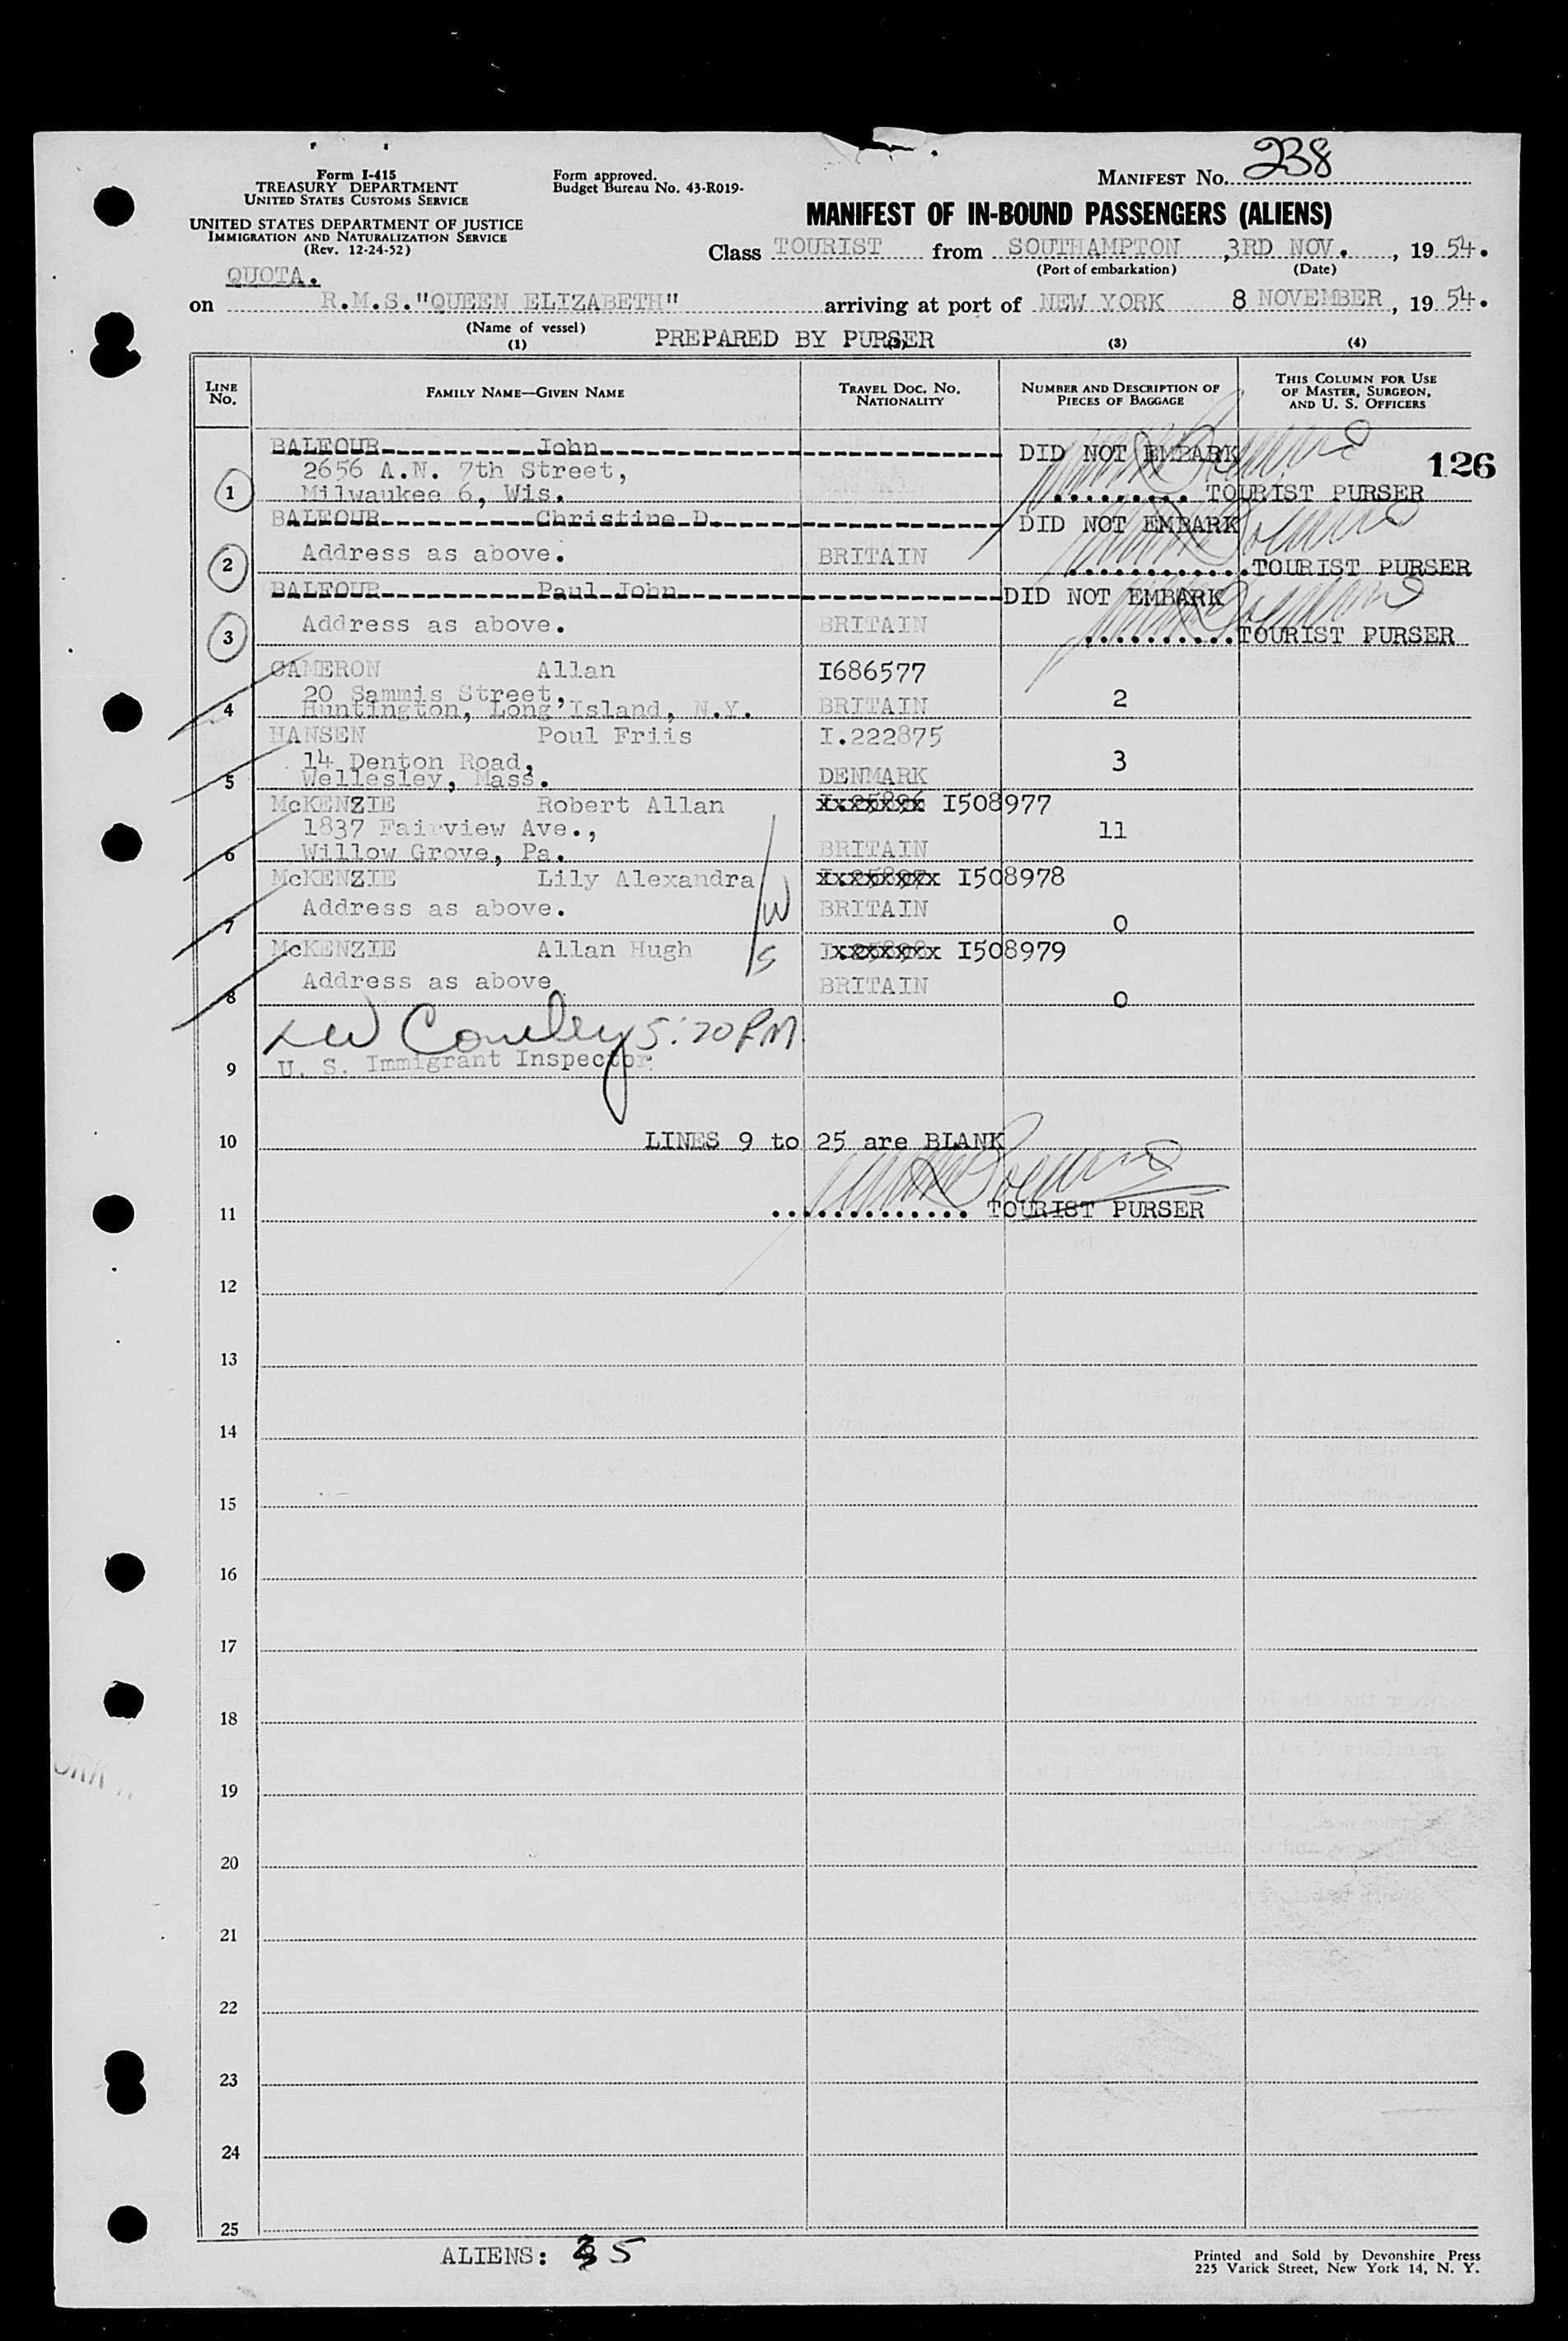 Form I-415
TREASURY DEPARTMENT
UNITED STATES CUSTOMS SERVICE
UNITED STATES DEPARTMENT OF JUSTICE
IMMIGRATION AND NATURALIZATION SERVICE
(Rev. 12-24-52)
Form approved.
Budget Bureau No. 43-R019-
MANIFEST NO. 238
MANIFEST OF IN-BOUND PASSENGERS (ALIENS)
Class TOURIST from SOUTHAMPTON, 3RD NOV., 1954.
(Port of embarkation) (Date)
QUOTA.
on R.M.S."QUEEN ELIZABETH" arriving at port of NEW YORK 8 NOVEMBER, 1954.
(Name of vessel)
PREPARED BY PURSER
(1) (3) (4)
LINE NO. FAMILY NAME—GIVEN NAME TRAVEL DOC. NO. NATIONALITY NUMBER AND DESCRIPTION OF PIECES OF BAGGAGE THIS COLUMN FOR USE OF MASTER, SURGEON, AND U. S. OFFICERS
BALFOUR John DID NOT EMBARK
126
2656 A.N. 7th Street,
1 Milwaukee 6, Wis. TOURIST PURSER
BALFOUR Christine D. DID NOT EMBARK
Address as above. BRITAIN
2 TOURIST PURSER
BALFOUR Paul John DID NOT EMBARK
Address as above. BRITAIN
3 TOURIST PURSER
CAMERON Allan I686577
20 Sammis Street,
4 Huntington, Long Island, N.Y. BRITAIN 2
HANSEN Poul Friis I.222875
14 Denton Road, 3
5 Wellesley, Mass. DENMARK
McKENZIE Robert Allan I508977
1837 Fairview Ave., 11
6 Willow Grove, Pa. BRITAIN
McKENZIE Lily Alexandra I508978
Address as above. W BRITAIN
7 0
McKENZIE Allan Hugh S I508979
Address as above BRITAIN
8 0
LW Conley 5:20 PM
U. S. Immigrant Inspector
9
10 LINES 9 to 25 are BLANK
11 TOURIST PURSER
12
13
14
15
16
17
18
19
20
21
22
23
24
25
ALIENS: 5
Printed and Sold by Devonshire Press
225 Varick Street, New York 14, N. Y.